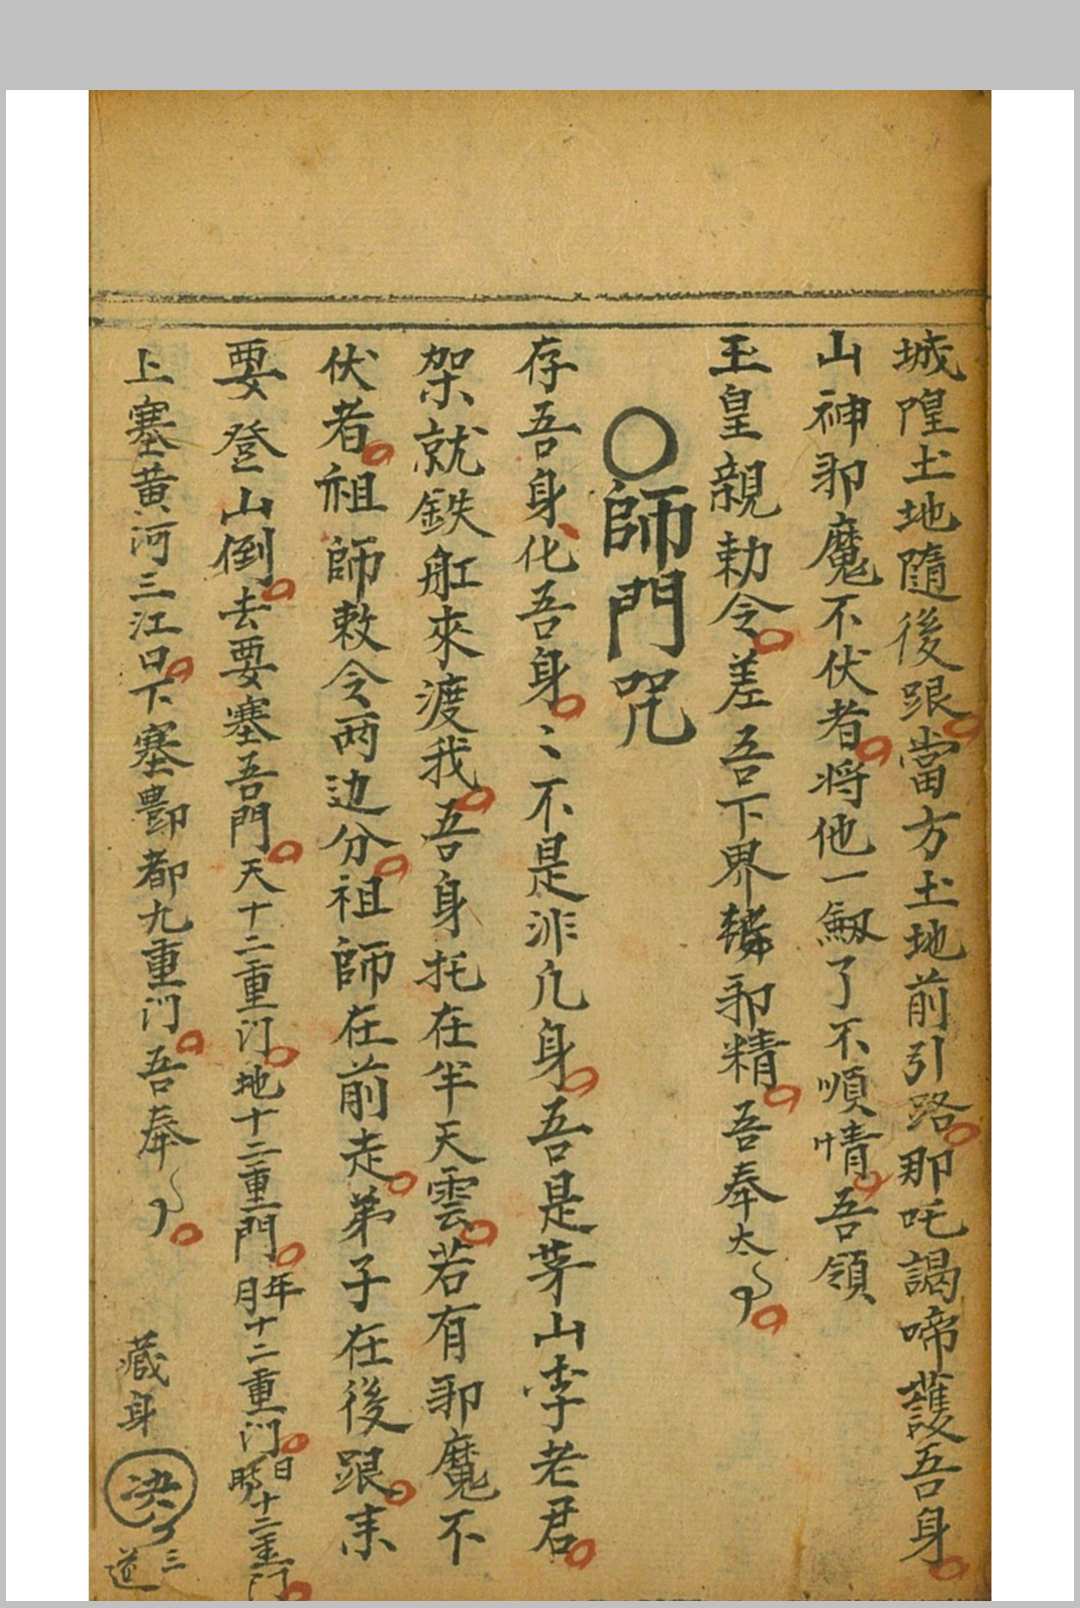 城隍土地隨後跟當方土地前引路那吒謁啼護吾身
山神邪魔不伏者将他一劔了不順情吾領
玉皇親勅令差吾下界轔邪精吾奉太
〇師門咒
存吾身化吾身〻不是非凢身吾是茅山李老君
架就鉄舡來渡我吾身托在半天雲若有邪魔不
伏者祖師敕令两边分祖師在前走弟子在後跟未
要登山倒去要塞吾門天十二重门地十二重門年月十二重门日時十二重门
上塞黄河三江口下塞酆都九重门吾奉
藏身决三道